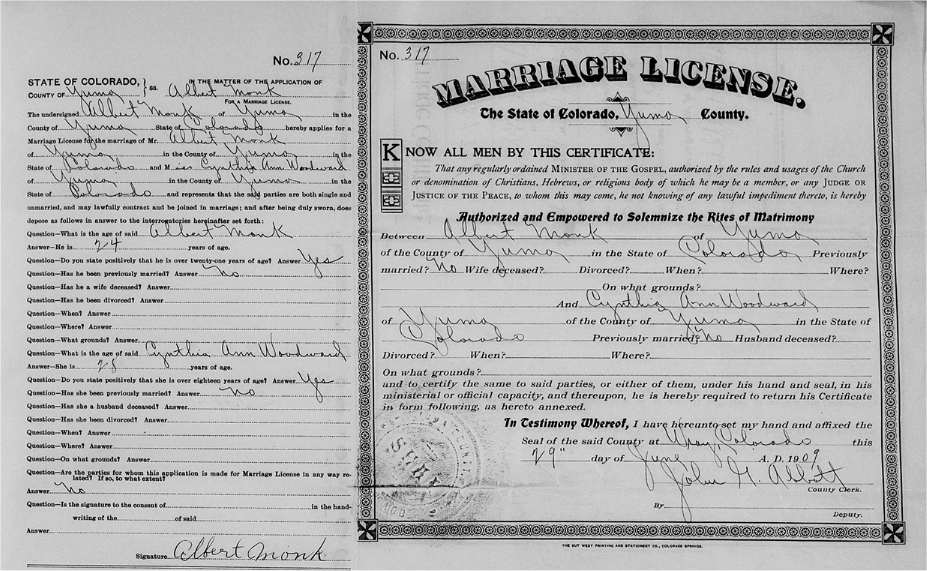 No. 317
STATE OF COLORADO, } ss. IN THE MATTER OF THE APPLICATION OF
COUNTY OF Yuma Albert Monk
FOR A MARRIAGE LICENSE.
The undersigned Albert Monk of Yuma in the
County of Yuma State of Colorado hereby applies for a
Marriage License for the marriage of Mr. Albert Monk
of Yuma in the County of Yuma in the
State of Colorado and Miss Cynthia Ann Woodward
of Yuma in the County of Yuma in the
State of Colorado and represents that the said parties are both single and
unmarried, and may lawfully contract and be joined in marriage; and after being duly sworn, does
depose as follows in answer to the interrogatories hereinafter set forth:
Question—What is the age of said Albert Monk
Answer—He is 24 years of age.
Question—Do you state positively that he is over twenty-one years of age? Answer Yes
Question—Has he been previously married? Answer No
Question—Has he a wife deceased? Answer
Question—Has he been divorced? Answer
Question—When? Answer
Question—Where? Answer
Question—What grounds? Answer
Question—What is the age of said Cynthia Ann Woodward
Answer—She is 28 years of age.
Question—Do you state positively that she is over eighteen years of age? Answer Yes
Question—Has she been previously married? Answer No
Question—Has she a husband deceased? Answer
Question—Has she been divorced? Answer
Question—When? Answer
Question—Where? Answer
Question—On what grounds? Answer
Question—Are the parties for whom this application is made for Marriage License in any way re-
lated? If so, to what extent?
Answer No
Question—Is the signature to the consent of in the hand-
writing of the of said
Answer
Signature Albert Monk
No. 317
MARRIAGE LICENSE.
The State of Colorado, Yuma County.
KNOW ALL MEN BY THIS CERTIFICATE:
That any regularly ordained MINISTER OF THE GOSPEL, authorized by the rules and usages of the Church
or denomination of Christians, Hebrews, or religious body of which he may be a member, or any JUDGE OR
JUSTICE OF THE PEACE, to whom this may come, he not knowing of any lawful impediment thereto, is hereby
Authorized and Empowered to Solemnize the Rites of Matrimony
Between Albert Monk of Yuma
of the County of Yuma in the State of Colorado Previously
married? No Wife deceased? Divorced? When? Where?
On what grounds?
And Cynthia Ann Woodward
of Yuma of the County of Yuma in the State of
Colorado Previously married? No Husband deceased?
Divorced? When? Where?
On what grounds?
and to certify the same to said parties, or either of them, under his hand and seal, in his
ministerial or official capacity, and thereupon, he is hereby required to return his Certificate
in form following, as hereto annexed.
In Testimony Whereof, I have hereunto set my hand and affixed the
Seal of the said County at Wray, Colorado this
29" day of June A. D. 1909
John G. Abbott
County Clerk.
By
Deputy.
THE OUT WEST PRINTING AND STATIONERY CO., COLORADO SPRINGS.